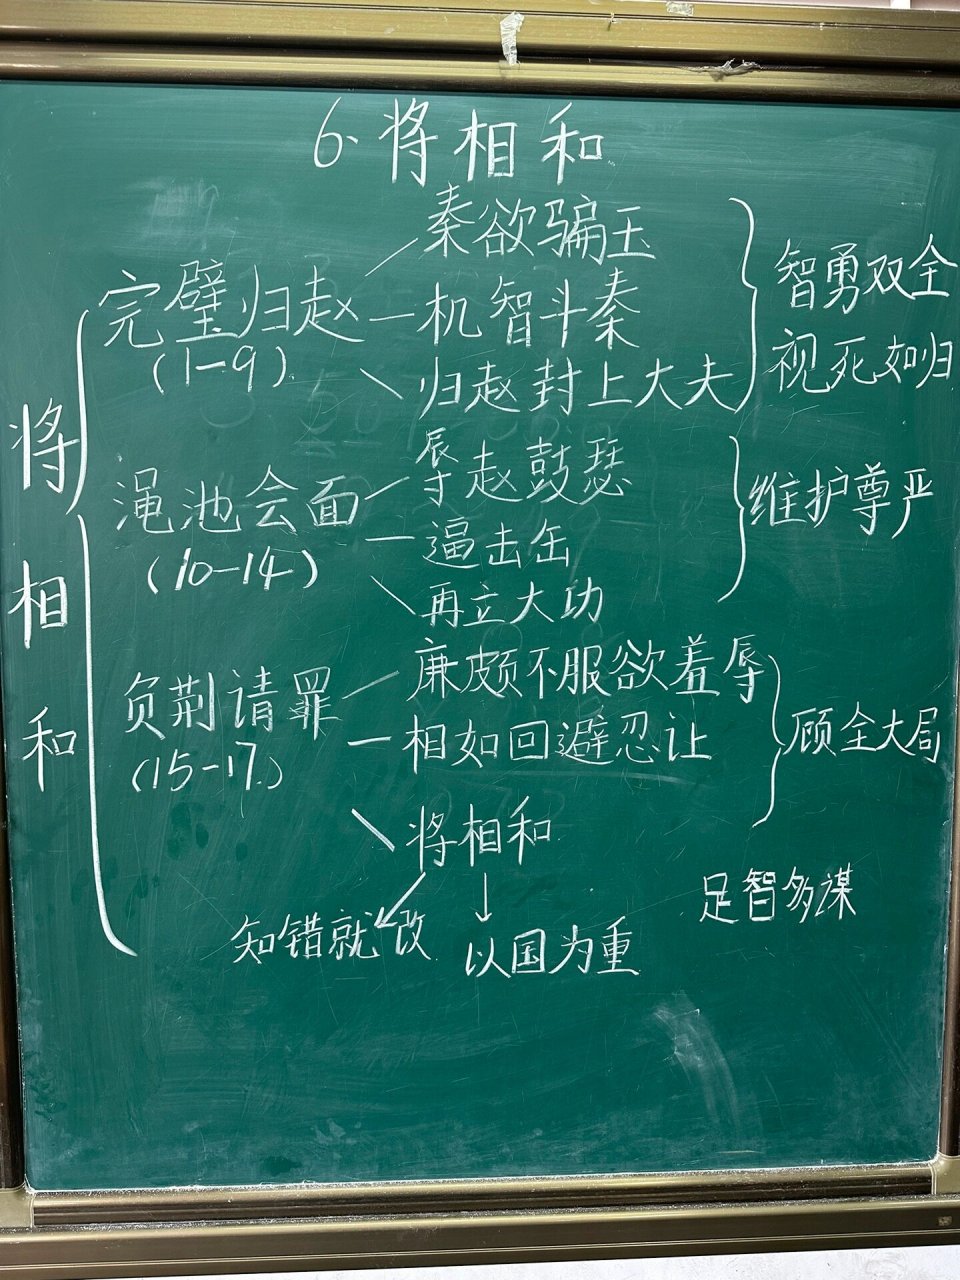 6、将相和
将相和
完璧归赵
(1-9)
秦欲骗玉
机智斗秦
归赵封上大夫
智勇双全
视死如归
渑池会面
(10-14)
辱赵鼓瑟
逼击缶
再立大功
维护尊严
负荆请罪
(15-17)
廉颇不服欲羞辱
相如回避忍让
将相和
顾全大局
知错就改
以国为重
足智多谋